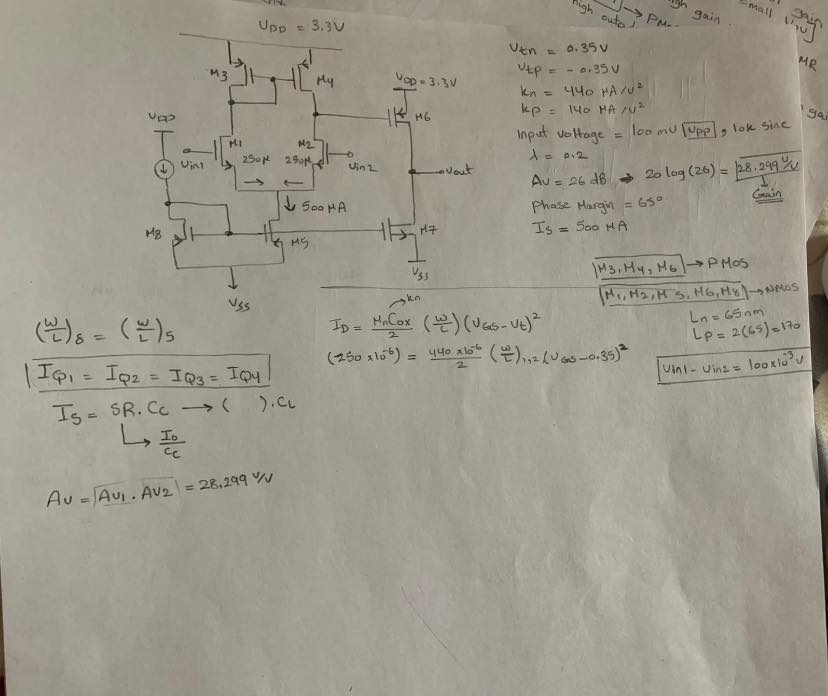 high outp
high gain
small
gain
PM
MR
gai
VDD = 3.3V
M3
M4
VDD = 3.3V
M6
VDD
M1
M2
250μ
250μ
Vin1
Vin2
Vout
500 μA
M8
M5
M7
VSS
VSS
Vtn = 0.35V
Vtp = - 0.35V
kn = 440 μA/V²
kp = 140 μA/V²
Input Voltage = 100mV Vpp, 10k sine
λ = 0.2
Av = 26 dB ⇒ 20 log(26) = 28.299 V/V
Gain
Phase Margin = 65°
IS = 500 μA
M3, M4, M6 → PMOS
M1, M2, M5, M6, M8 → NMOS
Ln = 65nm
Lp = 2(65) = 170
(W/L)8 = (W/L)5
IQ1 = IQ2 = IQ3 = IQ4
IS = SR. CC → ( ). CL
↳ Io/CC
Av = Av1 . Av2 = 28.299 V/V
kn
ID = μnCox/2 (W/L) (VGS - Vt)²
(250 x10⁻⁶) = 440 x10⁻⁶/2 (W/L)1,2 (VGS - 0.35)²
Vin1 - Vin2 = 100x10⁻³ V